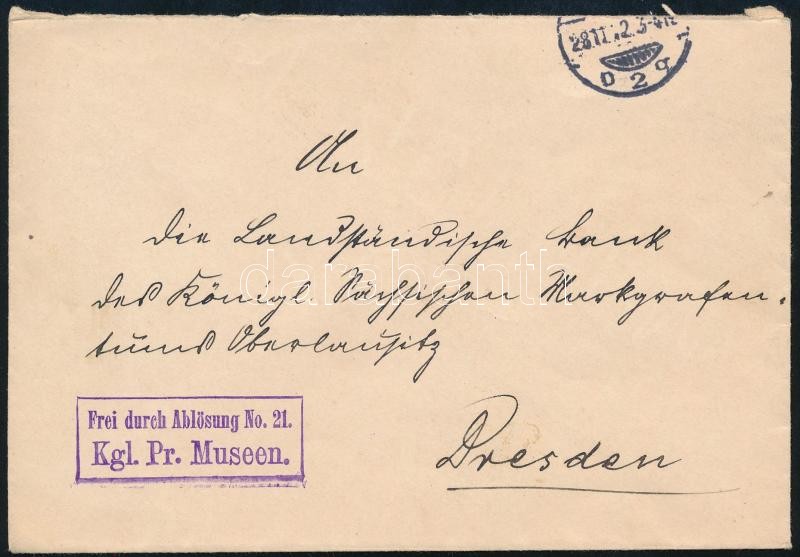 28.11. 12. 3-4N
D 2 q
An
die Landständische Bank
des Königl. Sächsischen Markgrafen-
tums Oberlausitz
darabanth
Frei durch Ablösung No. 21.
Kgl. Pr. Museen.
Dresden